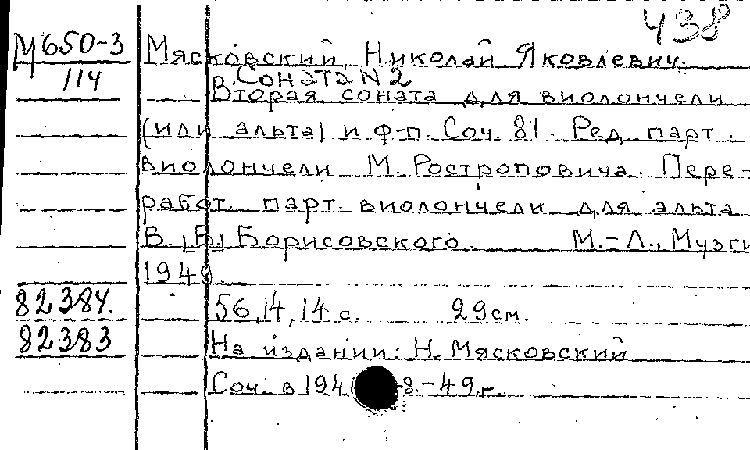 438
М650-3 Мясковский, Николай Яковлевич.
114 Соната N 2
Вторая соната для виолончели
(или альта) и ф-п. Соч. 81. Ред. парт.
виолончели М. Ростроповича. Пере-
работ. парт. виолончели для альта
В. Борисовского. М.-Л., Музги
194
82384. 56, 14, 14 с. 29 см.
82383 На издании: Н. Мясковский
Соч. в 194 -49 г.